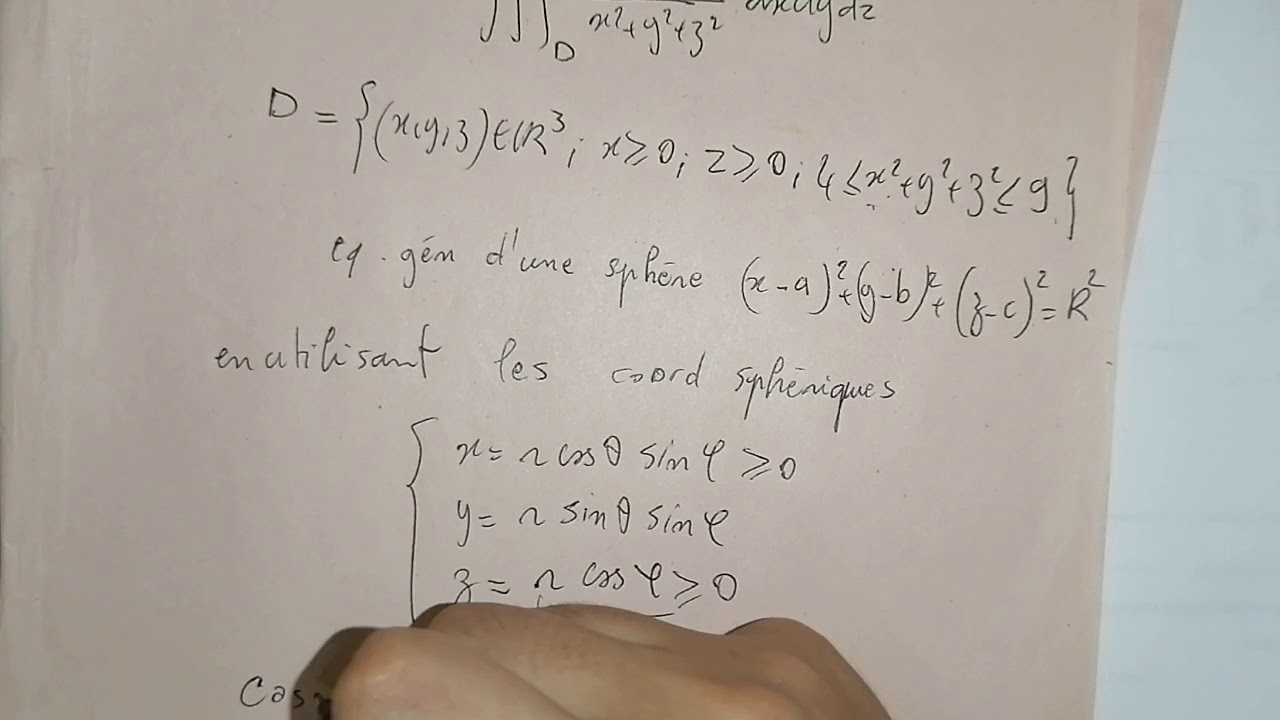 ∭_D x²+y²+z² dxdydz
D = {(x,y,z) ∈ ℝ³ ; x ≥ 0 ; z ≥ 0 ; 4 ≤ x²+y²+z² ≤ 9}
eq . gén d'une sphère (x-a)²+(y-b)²+(z-c)² = R²
en utilisant les coord sphériques
x = r cosθ sin φ ≥ 0
y = r sinθ sin φ
z = r cos φ ≥ 0
Cos